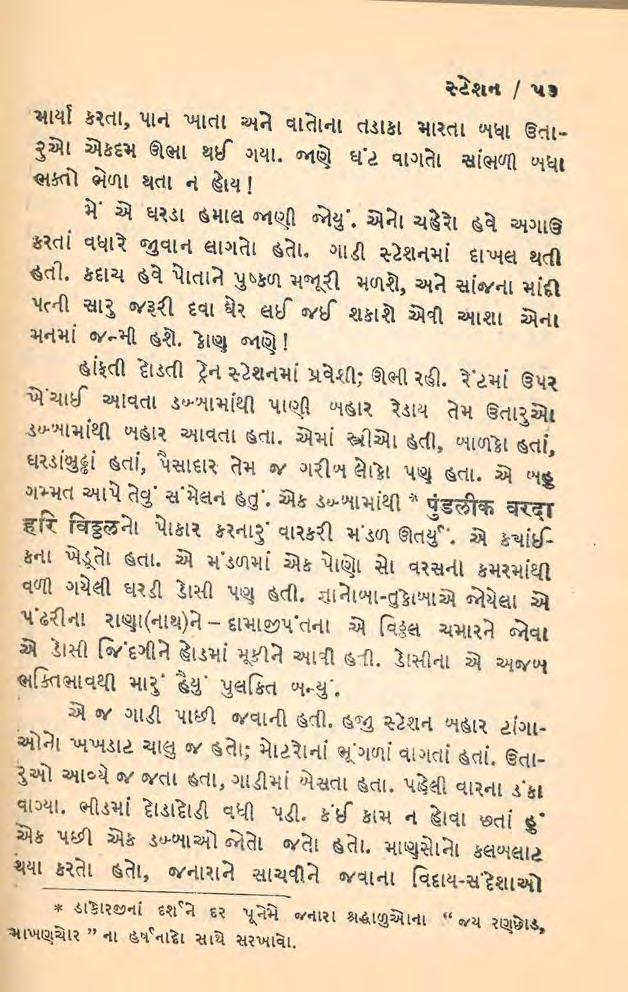 સ્ટેશન / ૫૭
માર્યા કરતા, પાન ખાતા અને વાતોના તડાકા મારતા બધા ઉતા-
રુઓ એકદમ ઊભા થઈ ગયા. જાણે ઘંટ વાગતો સાંભળી બધા
ભક્તો ભેળા થતા ન હોય !
મેં એ ઘરડા હમાલ જાણી જોયું. એનો ચહેરો હવે અગાઉ
કરતાં વધારે જુવાન લાગતો હતો. ગાડી સ્ટેશનમાં દાખલ થતી
હતી. કદાચ હવે પોતાને પુષ્કળ મજૂરી મળશે, અને સાંજના માંદી
પત્ની સારુ જરૂરી દવા ઘેર લઈ જઈ શકાશે એવી આશા એના
મનમાં જન્મી હશે. કોણ જાણે !
હાંફતી દોડતી ટ્રેન સ્ટેશનમાં પ્રવેશી; ઊભી રહી. રેંટમાં ઉપર
ખેંચાઈ આવતા ડબ્બામાંથી પાણી બહાર રેડાય તેમ ઉતારુઓ
ડબ્બામાંથી બહાર આવતા હતા. એમાં સ્ત્રીઓ હતી, બાળકો હતાં,
ઘરડાંબુઢ્ઢાં હતાં, પૈસાદાર તેમ જ ગરીબ લોકો પણ હતા. એ બહુ
ગમ્મત આપે તેવું સંમેલન હતું. એક ડબ્બામાંથી * पुंडलीक वरदा
हरि विठ्ठलનો પોકાર કરનારું વારકરી મંડળ ઊતર્યું. એ કયાંઈ-
કના ખેડૂતો હતા. એ મંડળમાં એક પોણો સો વરસના કમરમાંથી
વળી ગયેલી ઘરડી ડોસી પણ હતી. જ્ઞાનોબા-તુકોબાએ જોયેલા એ
પંઢરીના રાણા(નાથ)ને – દામાજીપંતના એ વિઠ્ઠલ ચમારને જોવા
એ ડોસી જિંદગીને હોડમાં મૂકીને આવી હતી. ડોસીના એ અજબ
ભક્તિભાવથી મારું હૈયું પુલકિત બન્યું.
એ જ ગાડી પાછી જવાની હતી. હજુ સ્ટેશન બહાર ટાંગા-
ઓનો ખખડાટ ચાલુ જ હતો; મોટરોનાં ભૂંગળાં વાગતાં હતાં. ઉતા-
રુઓ આવ્યે જ જતા હતા, ગાડીમાં બેસતા હતા. પહેલી વારના ડંકા
વાગ્યા. ભીડમાં દોડાદોડી વધી પડી. કંઈ કામ ન હોવા છતાં હું
એક પછી એક ડબ્બાઓ જોતો જતો હતો. માણસોનો કલબલાટ
થયા કરતો હતો, જનારાને સાચવીને જવાના વિદાય-સંદેશાઓ
* ડાકોરજીનાં દર્શને દર પૂનેમે જનારા શ્રદ્ધાળુઓના “ જય રણછોડ,
માખણચોર ” ના હર્ષનાદો સાથે સરખાવો.